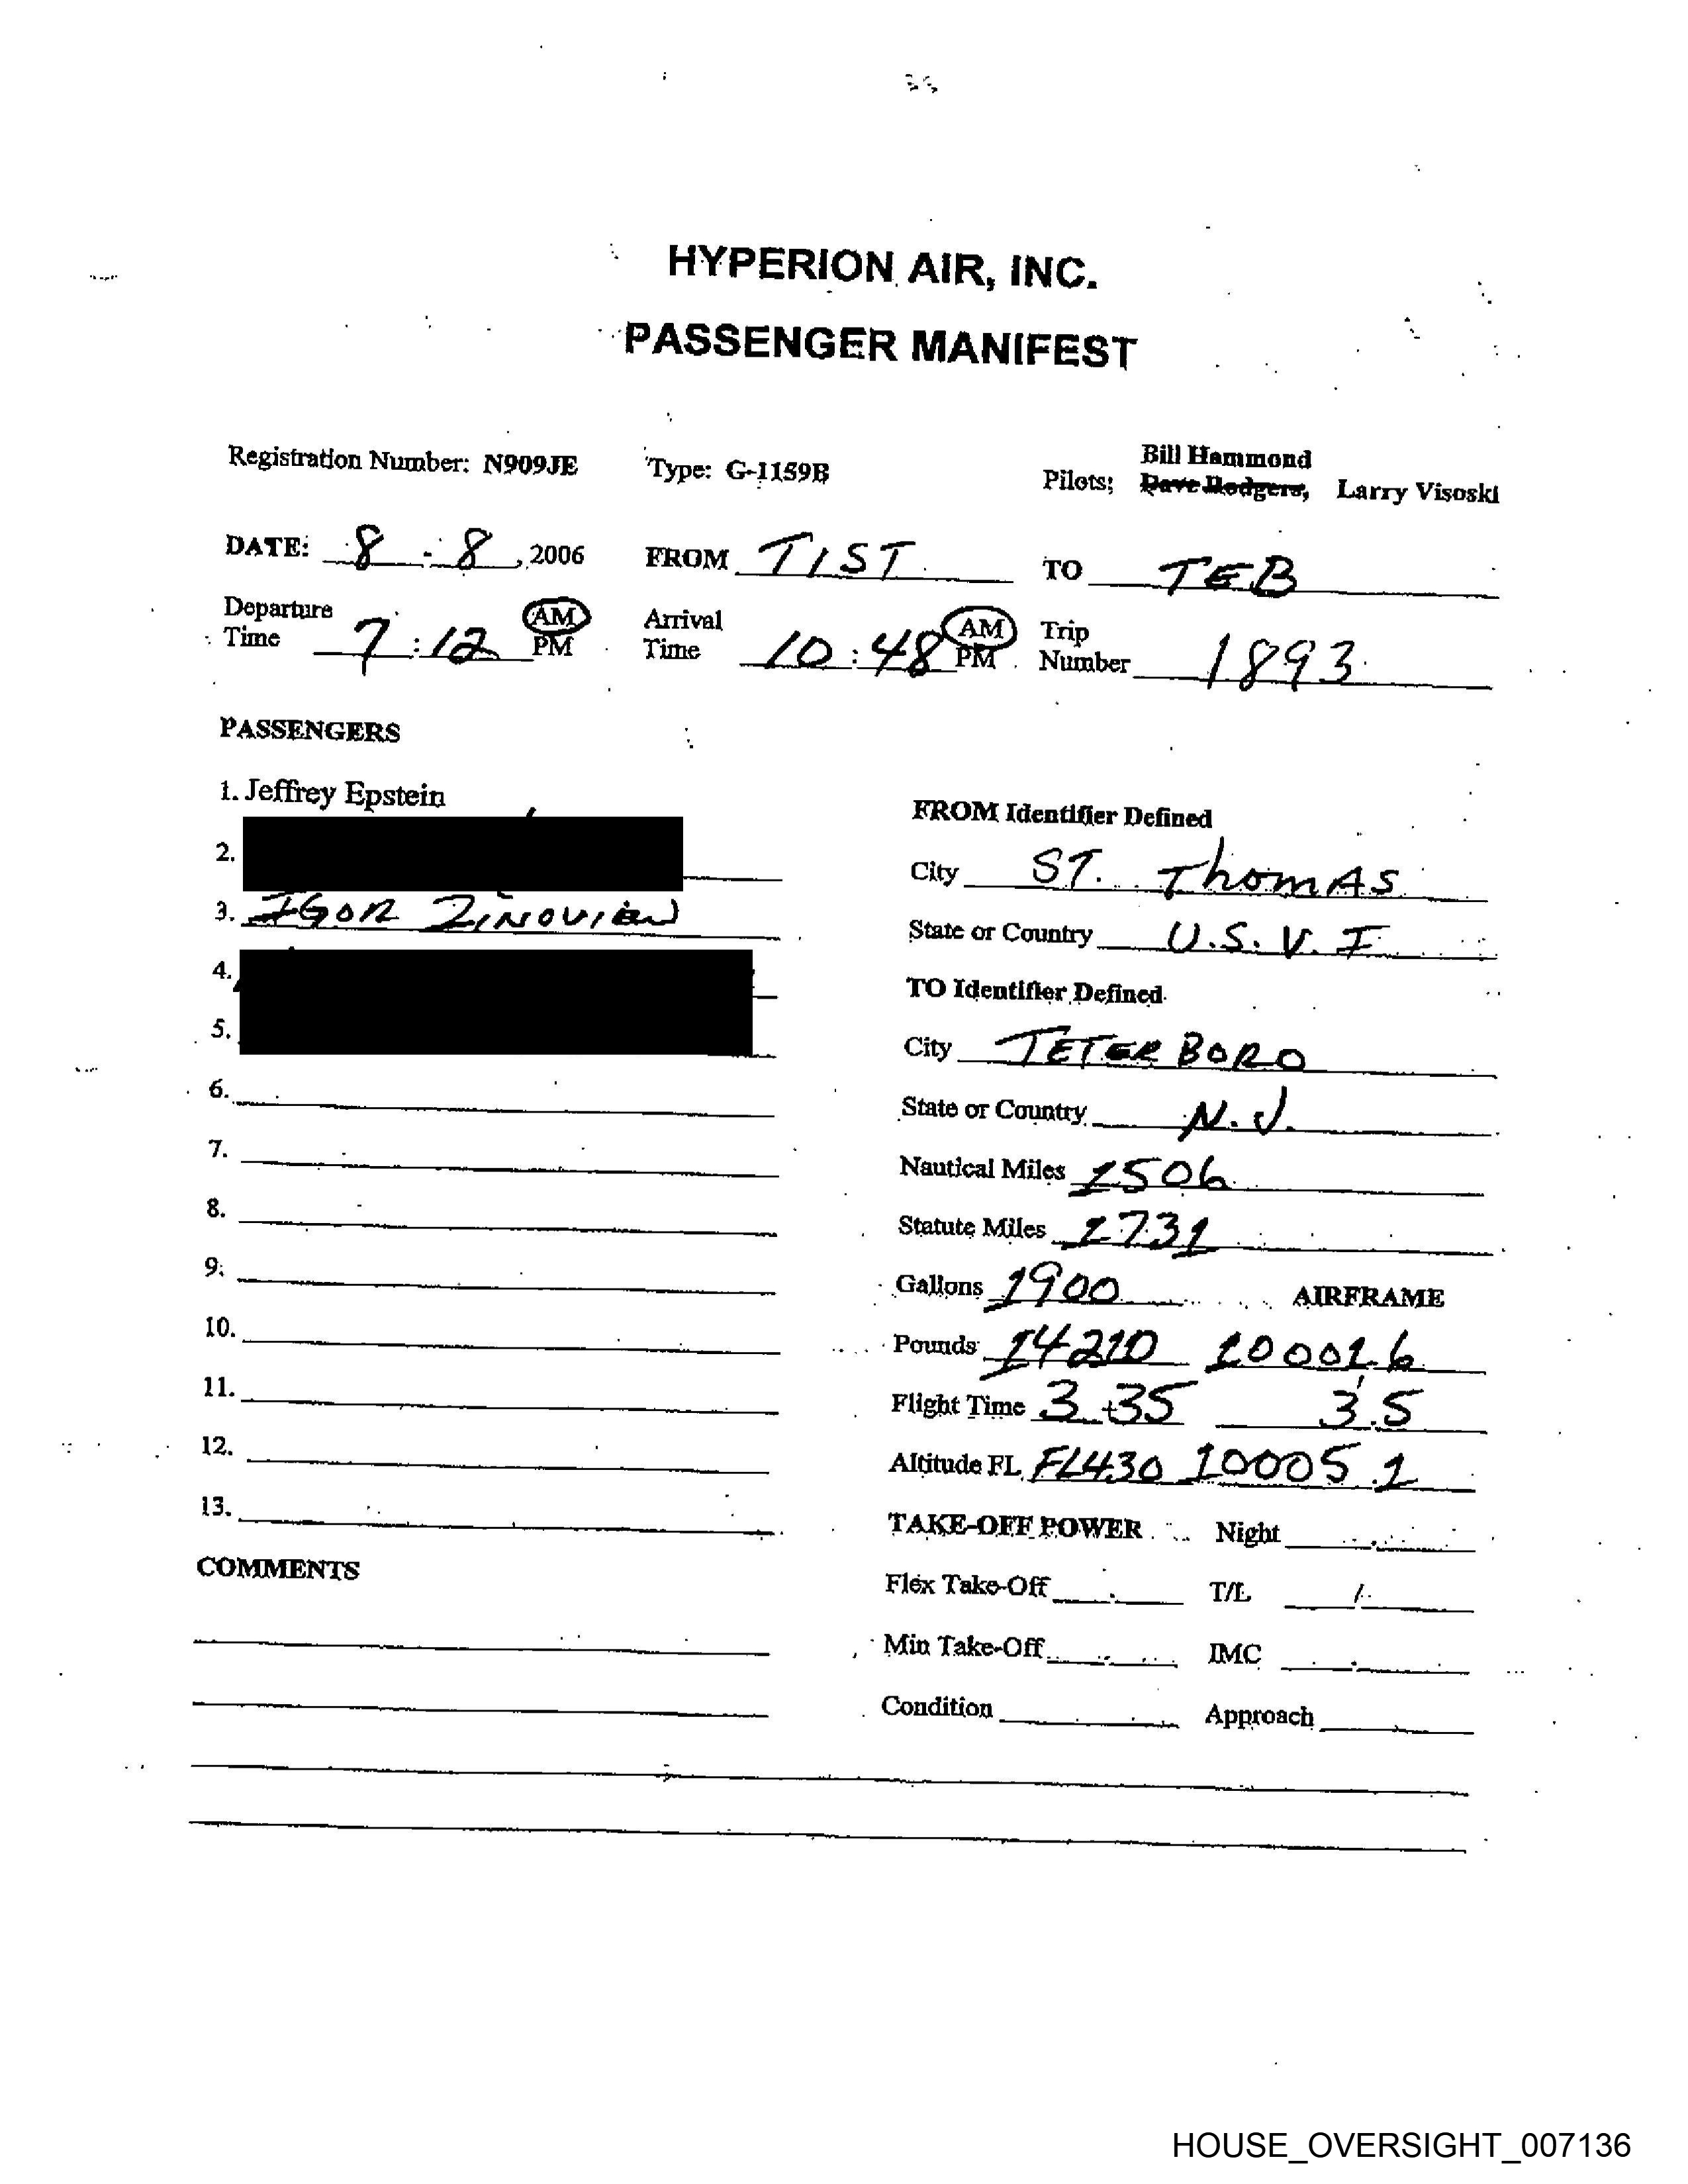 HYPERION AIR, INC.
PASSENGER MANIFEST
Registration Number: N909JE Type: G-1159B Pilots: Bill Hammond
Dave Rodgers, Larry Visoski
DATE: 8 - 8, 2006 FROM TIST TO TEB
Departure Time 7:12 AM PM Arrival Time 10:48 AM PM Trip Number 1893
PASSENGERS
1. Jeffrey Epstein
2.
3. IGOR ZINOVIEW
4.
5.
6.
7.
8.
9.
10.
11.
12.
13.
COMMENTS
FROM Identifier Defined
City ST. ThomAS
State or Country U.S.V.I
TO Identifier Defined
City TETERBORO
State or Country N.J.
Nautical Miles 1506
Statute Miles 1731
Gallons 1900 AIRFRAME
Pounds 14210 10001.6
Flight Time 3+35 3.5
Altitude FL FL430 10005.1
TAKE-OFF POWER Night
Flex Take-Off T/L /
Min Take-Off IMC
Condition Approach
HOUSE_OVERSIGHT_007136